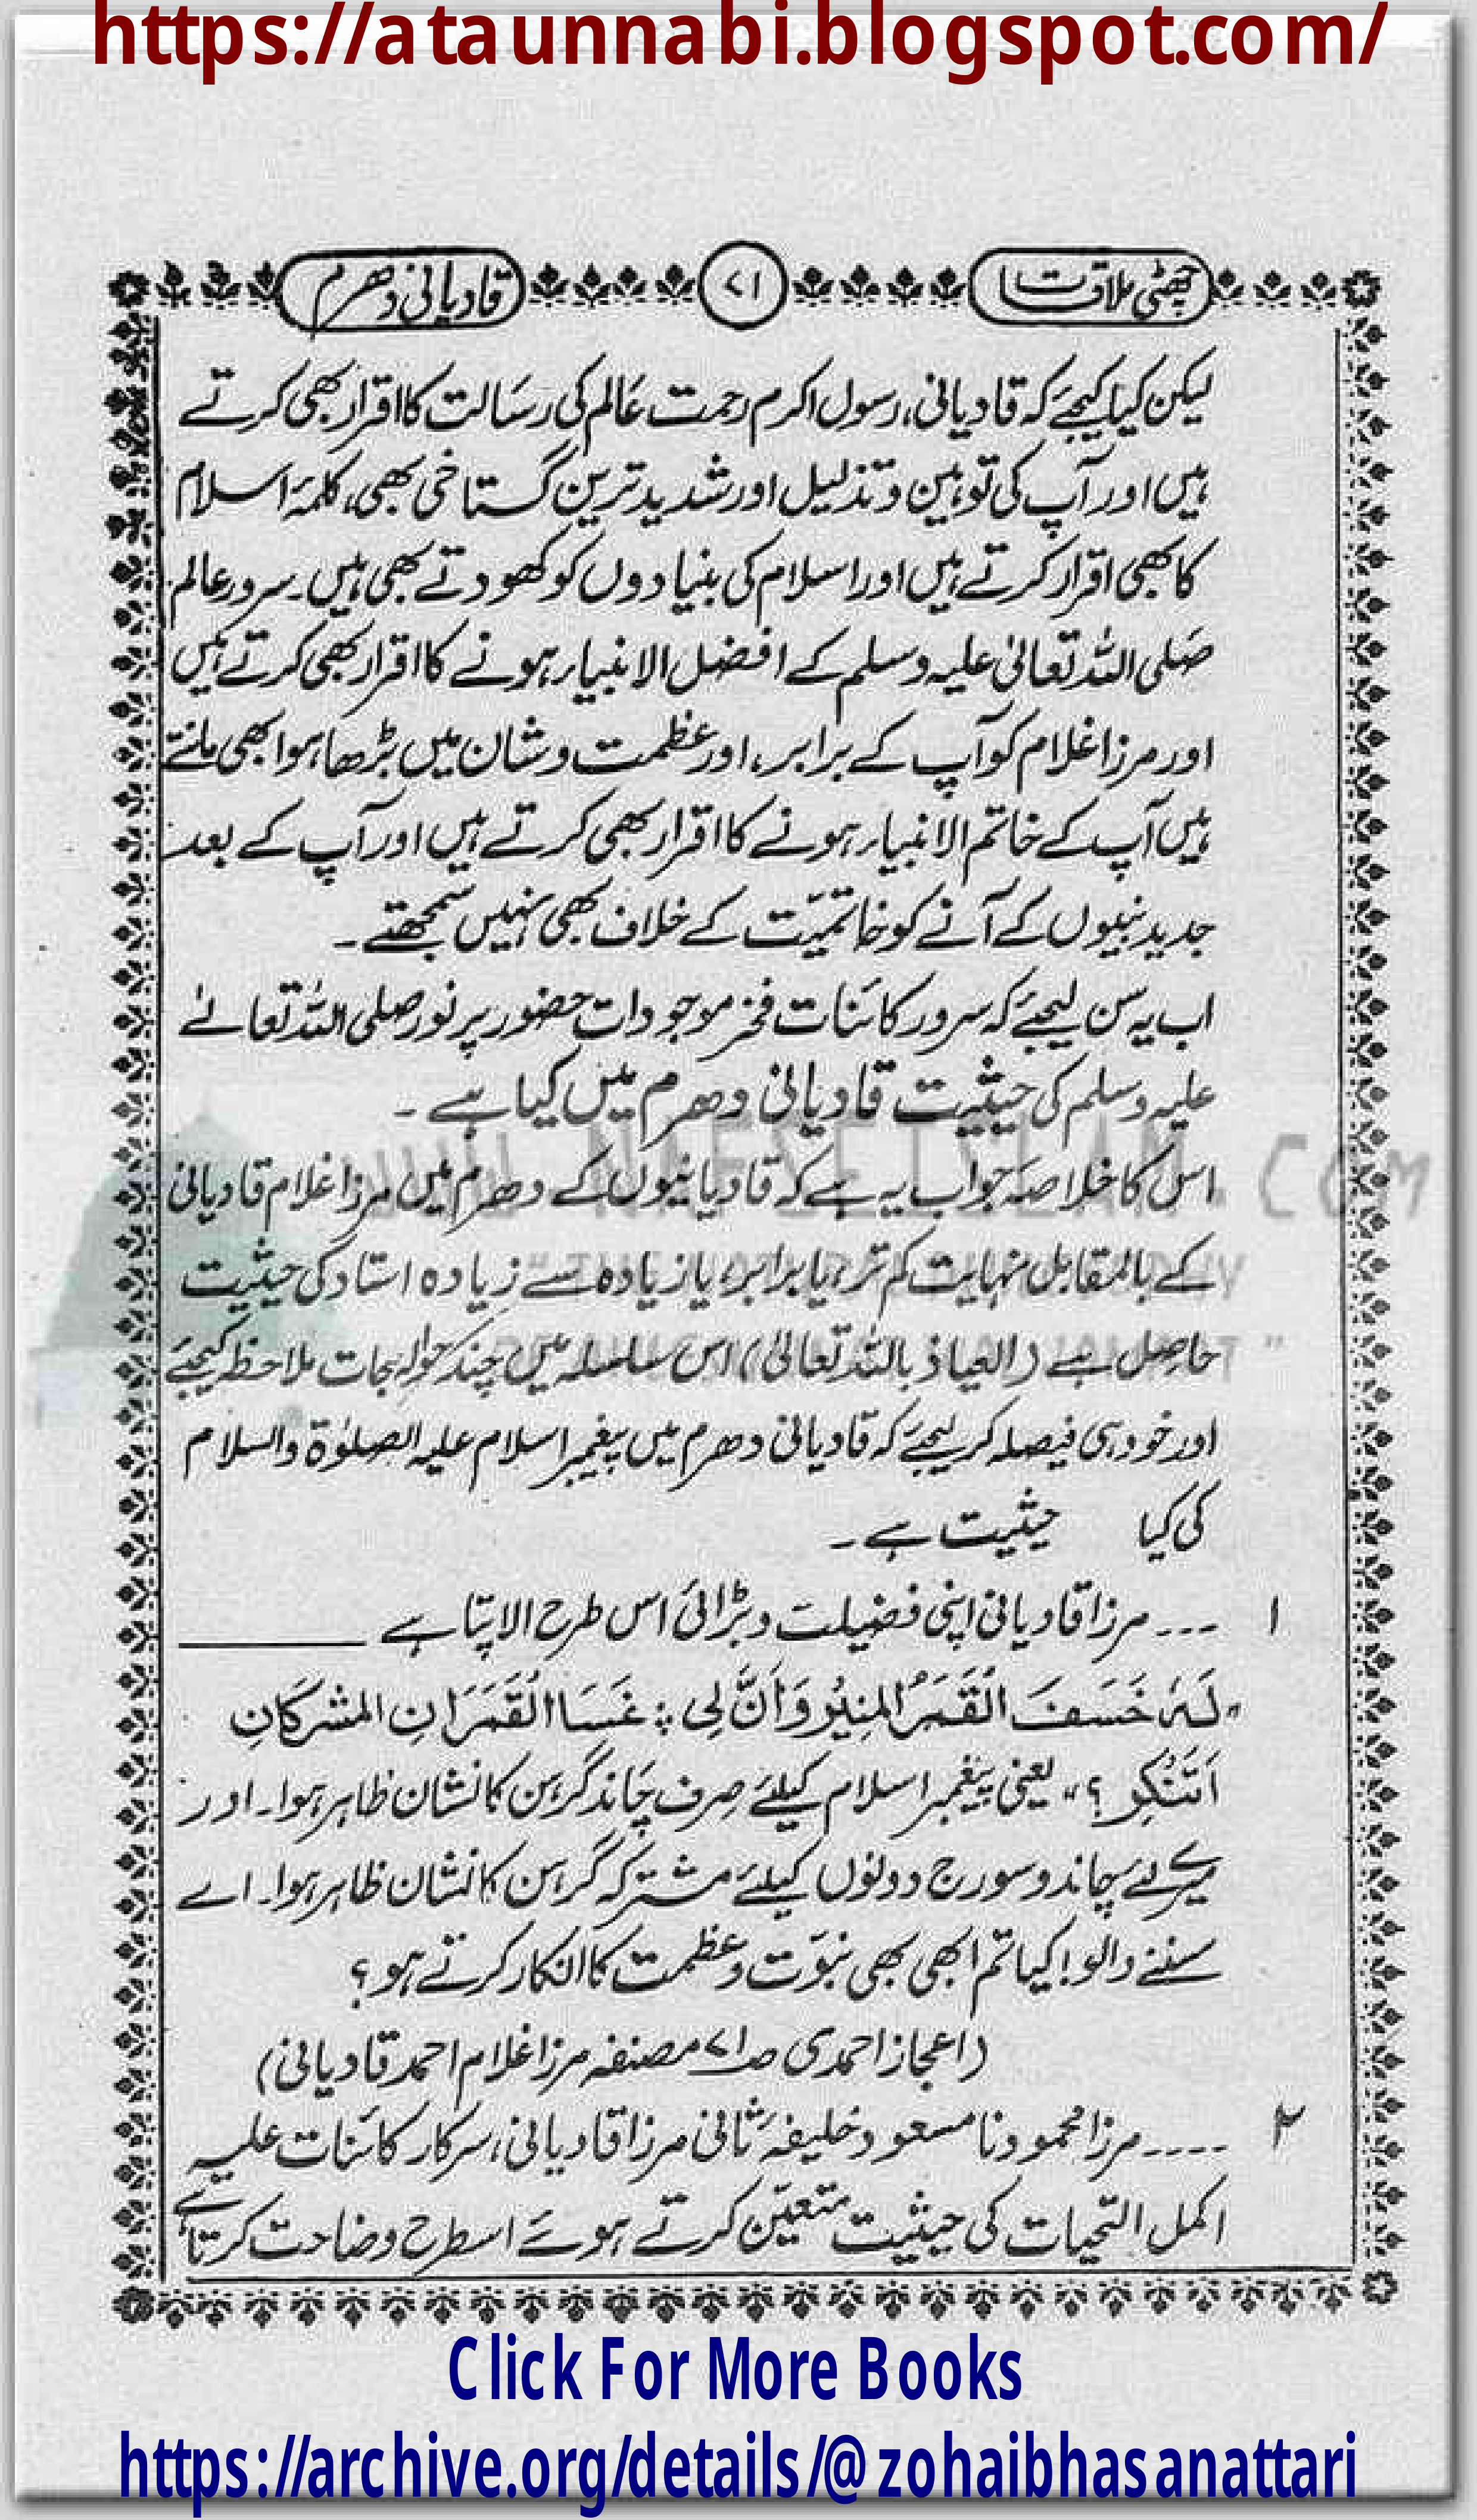 https://ataunnabi.blogspot.com/
چھٹی ملاقات ۷۱ قادیانی دھرم
لیکن کیا کیجئے کہ قادیانی، رسول اکرم رحمت عالم کی رسالت کا اقرار بھی کرتے
ہیں اور آپ کی توہین و تذلیل اور شدید ترین گستاخی بھی، کلمۂ اسلام
کا بھی اقرار کرتے ہیں اور اسلام کی بنیادوں کو کھودتے بھی ہیں۔ سرور عالم
صلی اللہ تعالیٰ علیہ وسلم کے افضل الانبیاء ہونے کا اقرار بھی کرتے ہیں
اور مرزا غلام کو آپ کے برابر، اور عظمت و شان میں بڑھا ہوا بھی مانتے
ہیں آپ کے خاتم الانبیاء ہونے کا اقرار بھی کرتے ہیں اور آپ کے بعد
جدید نبیوں کے آنے کو خاتمیّت کے خلاف بھی نہیں سمجھتے ۔
اب یہ سن لیجئے کہ سرور کائنات فخر موجودات حضور پر نور صلی اللہ تعالےٰ
علیہ وسلم کی حیثیت قادیانی دھرم میں کیا ہے ۔
اس کا خلاصہ جواب یہ ہے کہ قادیانیوں کے دھرم میں مرزا غلام قادیانی
کے بالمقابل نہایت کم تر، یا برابر، یا زیادہ سے زیادہ استاد کی حیثیت
حاصل ہے (العیاذ باللہ تعالیٰ) اس سلسلہ میں چند حوالہ جات ملاحظہ کیجئے
اور خود ہی فیصلہ کر لیجئے کہ قادیانی دھرم میں پیغمبر اسلام علیہ الصلوٰۃ والسلام
کی کیا حیثیت ہے ۔
۱ --- مرزا قادیانی اپنی فضیلت و بڑائی اس طرح الاپتا ہے ______
"لَہٗ خَسَفَ الْقَمَرُ المِنِیْرُ وَاَنَّ لِی ؛ غَسَا الْقَمَرَانِ المشرکَانِ
اَتَنْکِرُ ؟" یعنی پیغمبر اسلام کیلئے صرف چاند گرہن کا نشان ظاہر ہوا۔ اور
میرے لئے چاند و سورج دونوں کیلئے مشترکہ گرہن کا نشان ظاہر ہوا۔ اے
سننے والو! کیا تم ابھی بھی نبوّت و عظمت کا انکار کرتے ہو؟
(اعجاز احمدی صـ۷۱ مصنفہ مرزا غلام احمد قادیانی)
۲ ---- مرزا محمود نا مسعود خلیفۂ ثانی مرزا قادیانی، سرکار کائنات علیہ
اکمل التحیات کی حیثیت متعیّن کرتے ہوئے اسطرح وضاحت کرتا ہے
Click For More Books
https://archive.org/details/@zohaibhasanattari